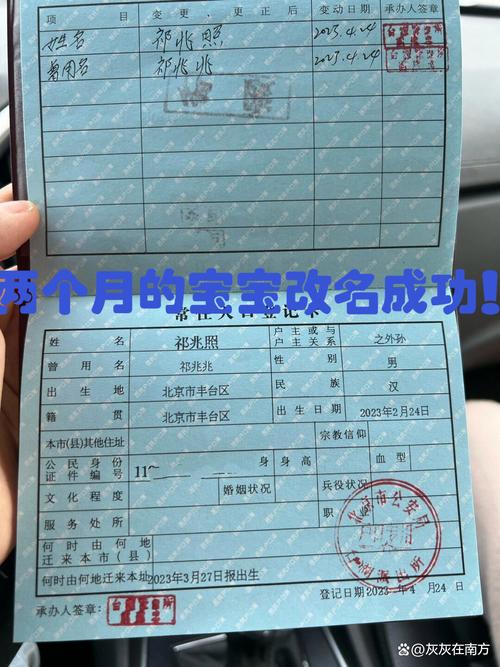 项 目 变更、更正后 变动日期 承办人签章
姓名 祁兆照 2023.4.24
曾用名 祁兆兆 2023.4.24
两个月的宝宝改名成功!
常住人口登记卡
姓 名 祁兆照 户主或与户主关系 之外孙
曾 用 名 祁兆兆 性 别 男
出 生 地 北京市丰台区 民 族 汉
籍 贯 北京市丰台区 出生日期 2023年2月24日
本市(县)其他住址 宗教信仰
公民身份证件编号 11 身 身高 血型
文化程度 婚姻状况 兵役状况
服务处所 职
何时由何地迁来本市(县)
何时由何地迁来本址 2023年3月27日报出生
承办人签章: 登记日期 2023年4月24日
北京市公安局
派出所
@灰灰在南方